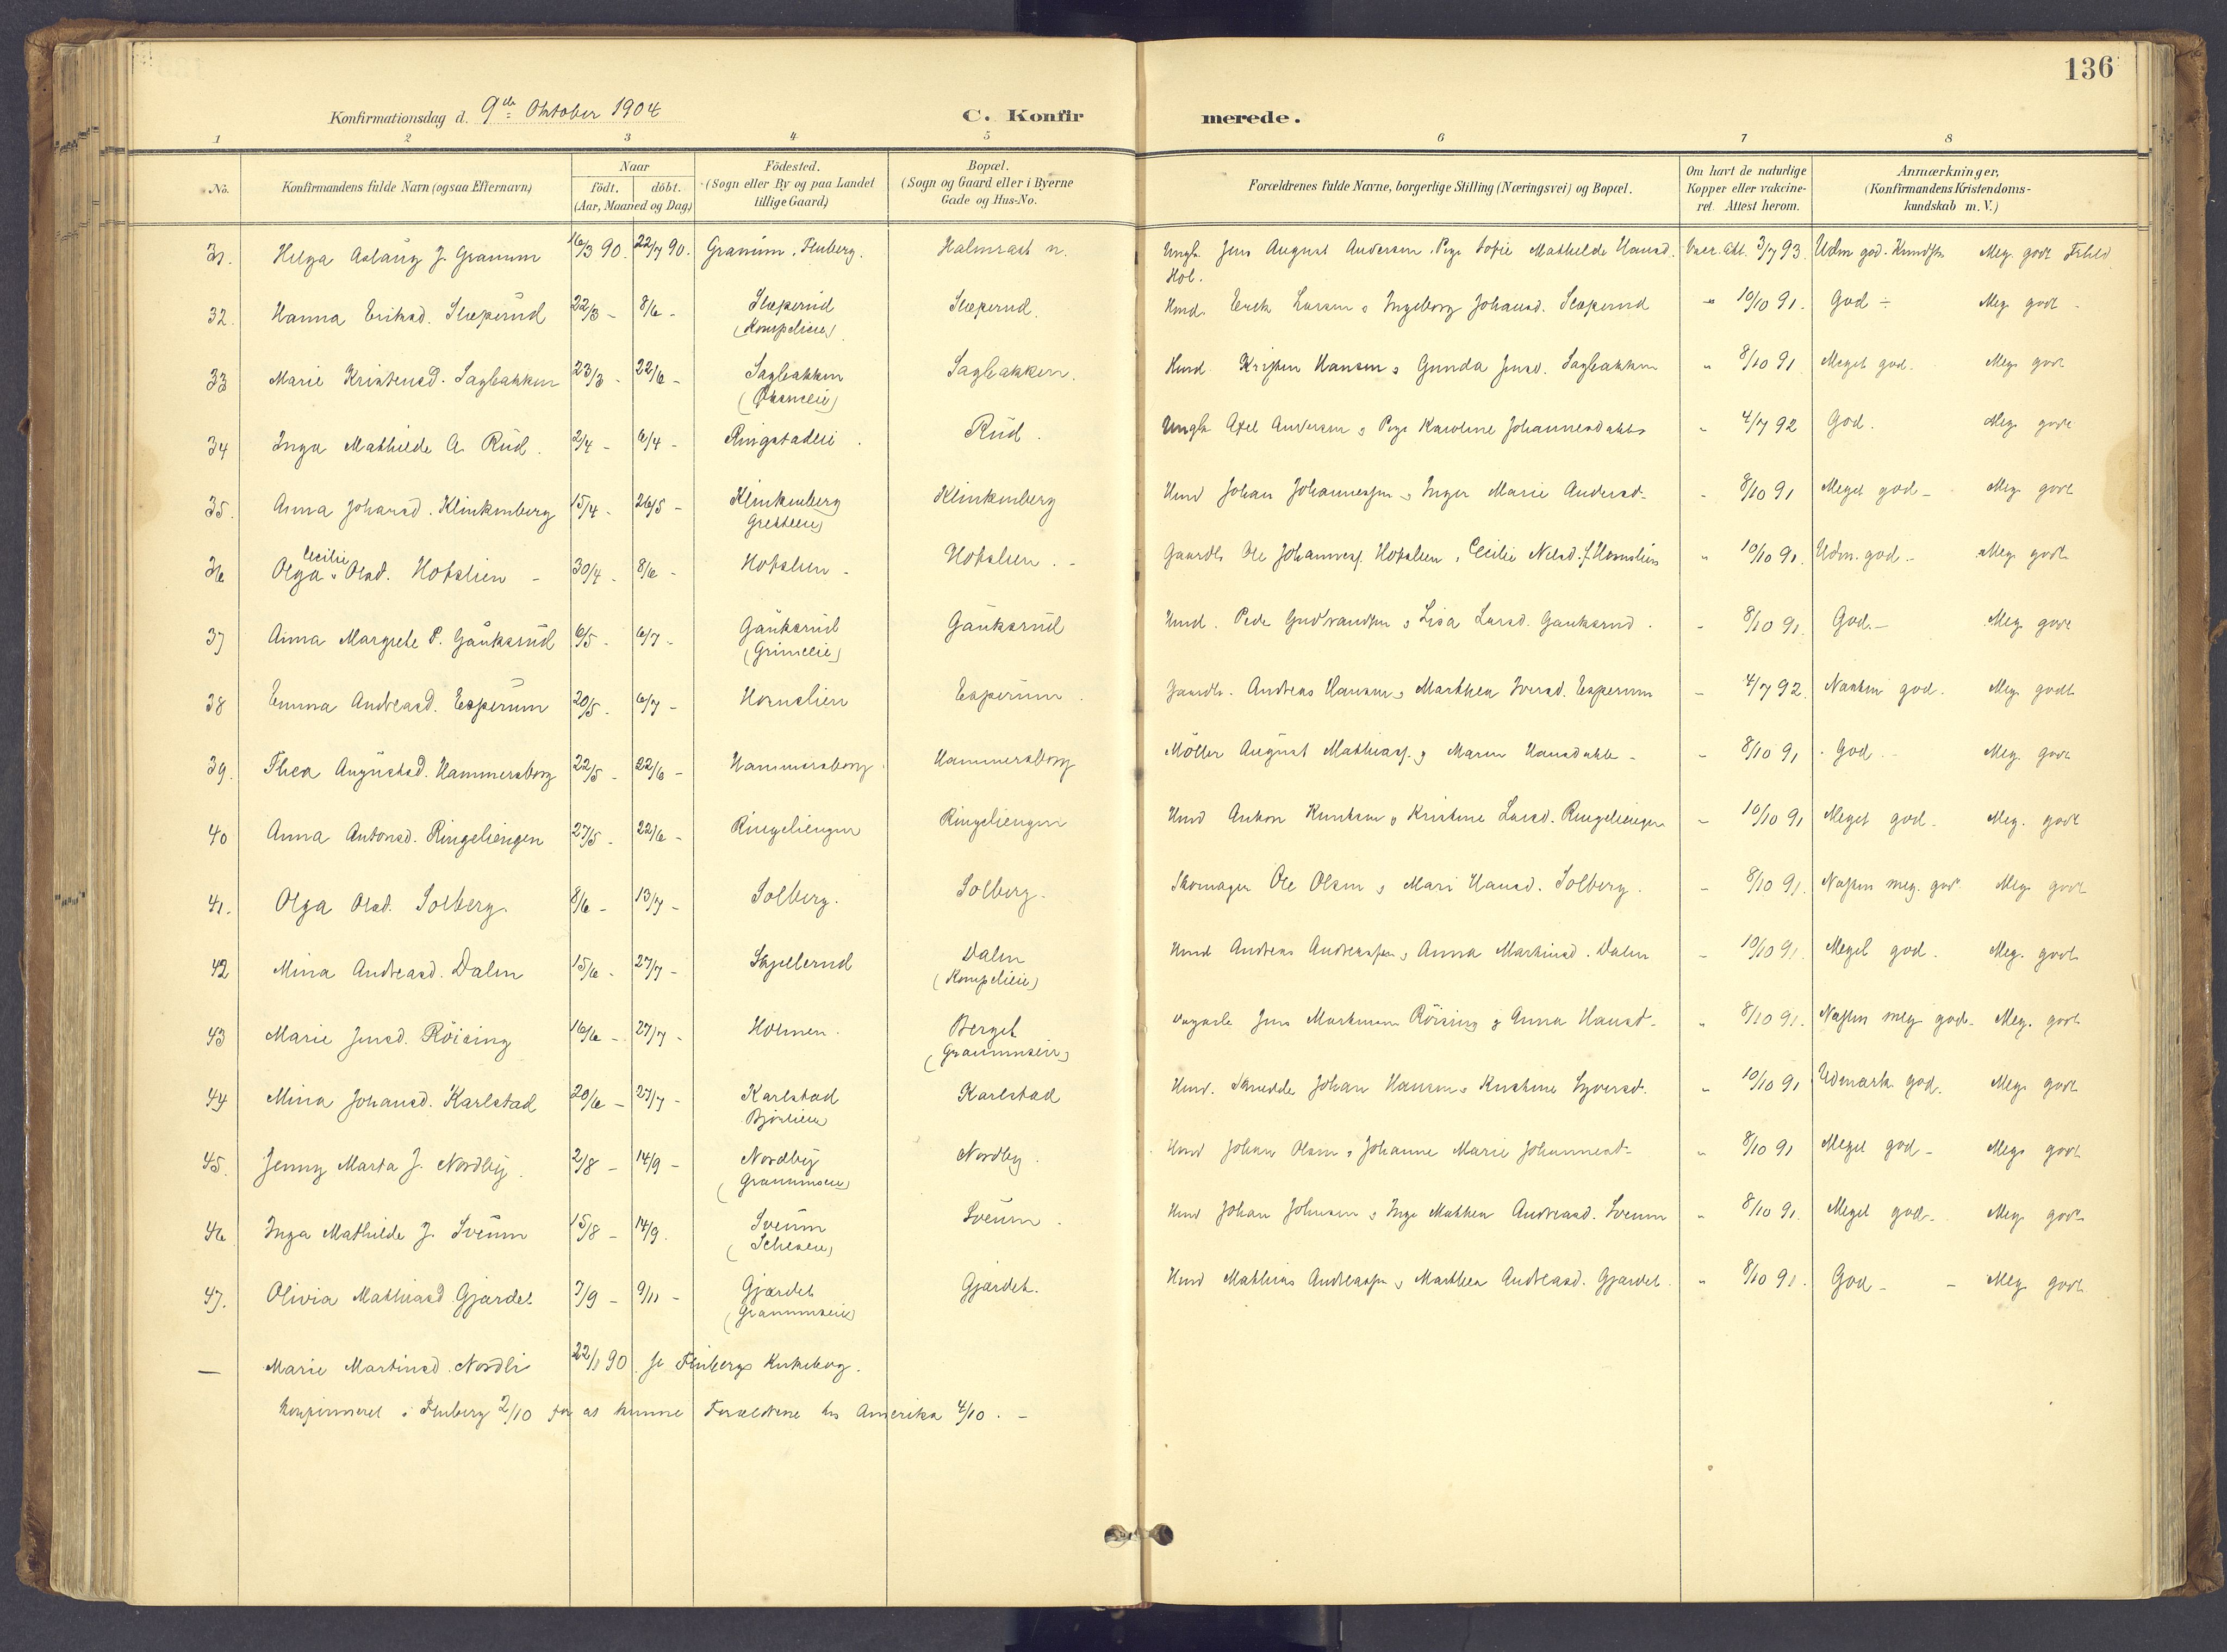 136
Konfirmationsdag d. 9de Oktober 1904
C. Konfirmerede.
1 2 3 4 5 6 7 8
No. Konfirmandens fulde Navn (ogsaa Efternavn) Naar födt. döbt. (Aar, Maaned og Dag) Födested. (Sogn eller By og paa Landet tillige Gaard) Bopæl. (Sogn og Gaard eller i Byerne Gade og Hus-No. Forældrenes fulde Navne, borgerlige Stilling (Næringsvei) og Bopæl. Om havt de naturlige Kopper eller vakcineret. Attest herom. Anmærkninger, (Konfirmandens Kristendomskundskab m. V.)
31. Helga Aslaug J. Granum 16/3 90. 22/7 90. Granum, Fluberg. Ungk. Jens August Andersen, Pige Sofie Mathilde Hansd. Hol. Vacc. Att. 3/7 93. Udm god. Kundsk. Meg. godt Forhld
32. Hanna Eriksd. Slæperud 22/3 - 8/6 - Slæperud Slæperud. Hmd. Erik Larsen & Ingeborg Johansd. Slæperud " 10/10 91. God - Meg godt -
33 Marie Kristensd. Sagbakken 23/3 - 22/6 - Sagbakken Sagbakken. Hmd. Kristen Hansen & Gunda Jensd. Sagbakken " 8/10 91 Meget god. Meg godt
34 Inga Mathilde A. Rud. 2/4 - 6/4 - Ringstadeie. Rud. Ungk Axel Andersen & Pige Karoline Johannesdatter " 4/7 92 God. Meg godt
35. Anna Johansd. Klinkenberg 15/4 - 26/5 - Klinkenberg Klinkenberg Hmd Johan Johannessen & Inger Marie Andersd - " 8/10 91 Meget god - Meg godt
36 Olga Cecilie Olsd. Hofslien - 30/4 - 8/6 - Hofslien - Hofslien. - Gaardb. Ole Johannes. Hofslien, Cecilie Nilsd. " 10/10 91. Udm. god - Meg godt
37 Anna Margrete P. Gaukerud 6/5 - 6/7 - Gaukerud (Grimeeie) Gaukerud Hmd. Peder Gudbrandsen & Lisa Larsd. Gaukerud. - 8/10 91. God. - Meg godt
38 Emma Andreasd. Esperum 20/5 - 6/7 - Hornslien Esperum. Gaardb. Andreas Hansen & Marthea Iversd. Esperum - 4/7 92. Næsten god. Meg godt
39. Thea Augustsd. Hammersborg 22/5 - 22/6 - Hammersborg Hammersborg Möller August Mathias. & Maren Hansdatter - - 8/10 91 God - Meg godt
40 Anna Antonsd. Ringeliengen 27/5 - 22/6 - Ringeliengen Ringeliengen Hmd Anton Knutsen & Kristine Larsd. Ringeliengen - 10/10 91 Meget god - Meg. godt
41. Olga Olsd. Solberg. 8/6 - 13/7 - Solberg. Solberg. Skomager Ole Olsen & Mari Hansd. Solberg. - 8/10 91. Næsten meg. god Meg godt
42 Mina Andreasd. Dalen 15/6 - 27/7 - Skjellerud Dalen Hmd Andreas Andreassen & Anna Martinsd. Dalen - 10/10 91. Meget god. Meg. godt
43 Marie Jensd. Röising 16/6 - 27/7 - Holmen. Berget (Granumseie) Jens Röising & Anna Hansd - " 8/10 91. Næsten meg god - Meg. godt
44 Mina Johansd. Karlstad 20/6 - 27/7 - Karlstad Karlstad Hmd. Skrædder Johan Hansen & Kristine Syversd. " 10/10 91 Udmærk. god. Meg godt
45. Jenny Marta J. Nordby. 2/8 - 14/9 - Nordby (Granumseie) Nordby. Hmd Johan Olsen & Johanne Marie Johannesd - " 8/10 91 Meget god - Meg godt
46 Inga Mathilde J. Sveum 15/8 - 14/9. Sveum Sveum. Hmd Johan Johnsen & Inge Mathea Andreasd. Sveum " 8/10 91. Meget god - Meg godt
47. Olivia Mathiasd Gjærdet 7/9 - 9/11 - Gjærdet (Granumseie) Gjærdet. Hmd Mathias Andreassen & Marthea Andreasd. Gjærdet. " 8/10 91. God - - Meg godt
— Marie Martinsd. Nordli 22/1 90 se Flubergs Kirkebog.
Konfirmeret i Fluberg 2/10 for at kunne Forældrene til Amerika 4/10. -